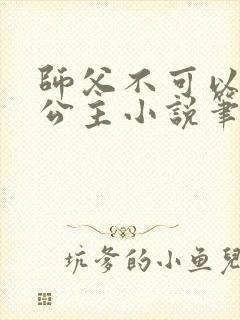 師父不可以
公主小說筆
坑爹的小鱼兒